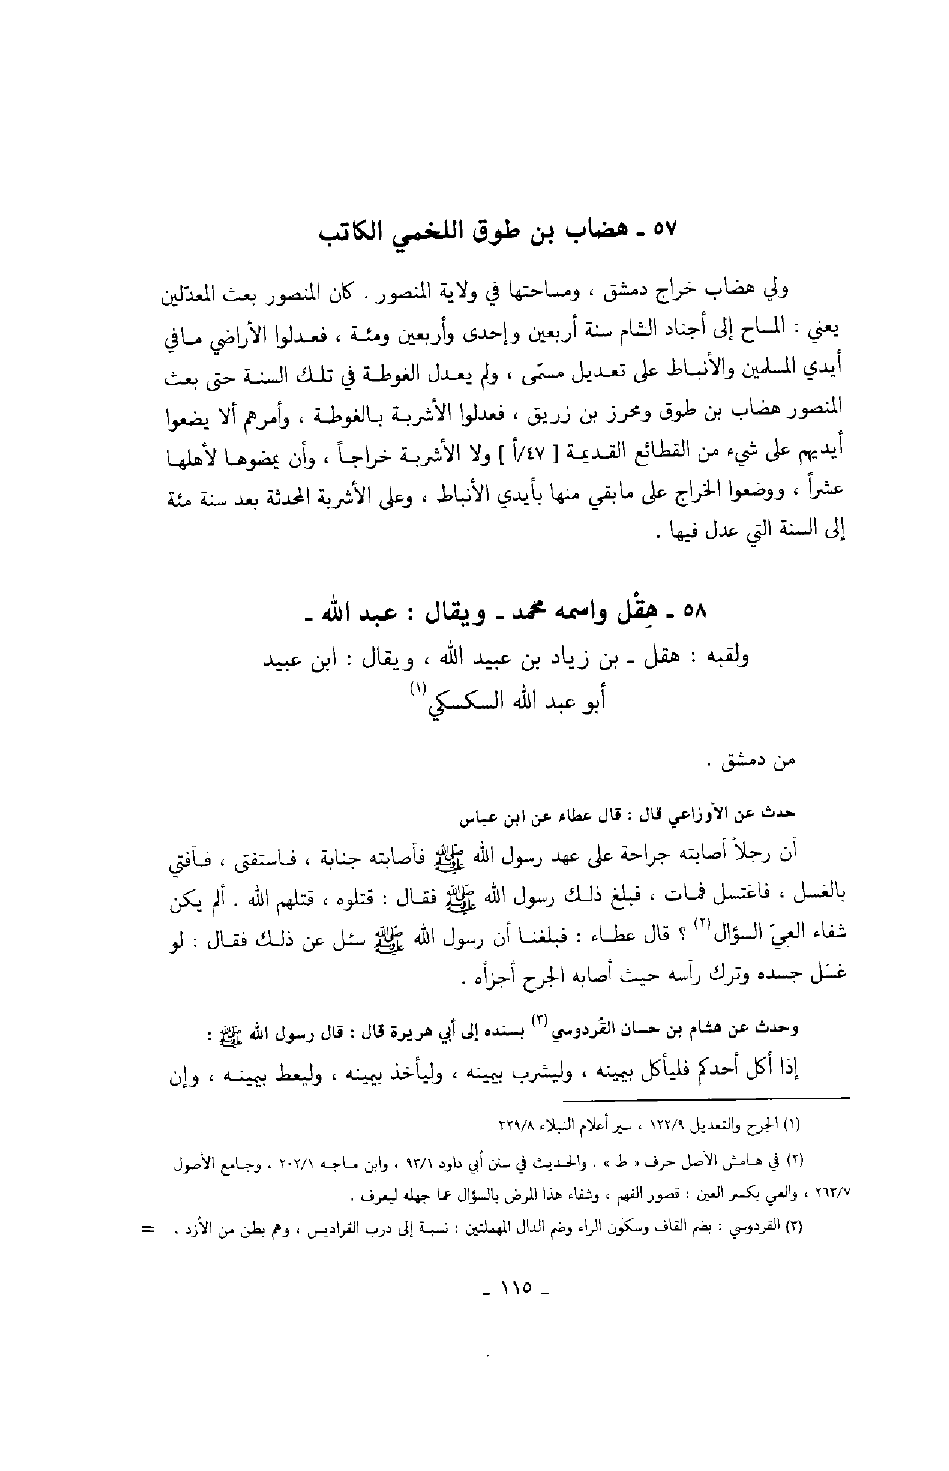 ٥٧ ـ هضاب بن طوق اللخمي الكاتب
ولي هضاب خراج دمشق ، ومساحتها في ولاية المنصور . كان المنصور بعث المعدّلين
يعني : المساح إلى أجناد الشام سنة أربعين وإحدى وأربعين ومئة ، فعدلوا الأراضي مافي
أيدي المسلمين والأنباط على تعديل مسمّى ، ولم يعدل الغوطة في تلك السنة حتى بعث
المنصور هضاب بن طوق ومحرز بن زريق ، فعدلوا الأشربة بالغوطة ، وأمرهم ألا يضعوا
أيديهم على شيء من القطائع القديمة [ ٤٧/أ ] ولا الأشربة خراجاً ، وأن يمضوها لأهلها
عشراً ، ووضعوا الخراج على مابقي منها بأيدي الأنباط ، وعلى الأشربة المحدثة بعد سنة مئة
إلى السنة التي عدل فيها .
٥٨ ـ هِقْل واسمه محمد ـ ويقال : عبد الله ـ
ولقبه : هقل ـ بن زياد بن عبيد الله ، ويقال : ابن عبيد
أبو عبد الله السكسكي(١)
من دمشق .
حدث عن الأوزاعي قال : قال عطاء عن ابن عباس
أن رجلاً أصابته جراحة على عهد رسول الله ﷺ فأصابته جنابة ، فاستفتى ، فأفتي
بالغسل ، فاغتسل فمات ، فبلغ ذلك رسول الله ﷺ فقال : قتلوه ، قتلهم الله . ألم يكن
شفاء العيّ السؤال(٢) ؟ قال عطاء : فبلغنا أن رسول الله ﷺ سئل عن ذلك فقال : لو
غسَل جسده وترك رأسه حيث أصابه الجرح أجزأه .
وحدث عن هشام بن حسان القُردوسي(٣) بسنده إلى أبي هريرة قال : قال رسول الله ﷺ :
إذا أكل أحدكم فليأكل بيمينه ، وليشرب بيمينه ، وليأخذ بيمينه ، وليعط بيمينه ، وإن
(١) الجرح والتعديل ١٢٢/٩ ، سير أعلام النبلاء ٣٣٩/٨
(٢) في هامش الأصل حرف « ط » . والحديث في سنن أبي داود ٩٣/١ ، وابن ماجه ٢٠٢/١ ، وجامع الأصول
٢٦٣/٧ ، والعي بكسر العين : قصور الفهم ، وشفاء هذا المرض بالسؤال عما جهله ليعرف .
(٣) القردوسي : بضم القاف وسكون الراء وضم الدال المهملتين : نسبة إلى درب القراديس ، وهم بطن من الأزد . =
ـ ١١٥ ـ